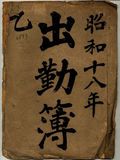 昭和十八年
出勤簿
乙